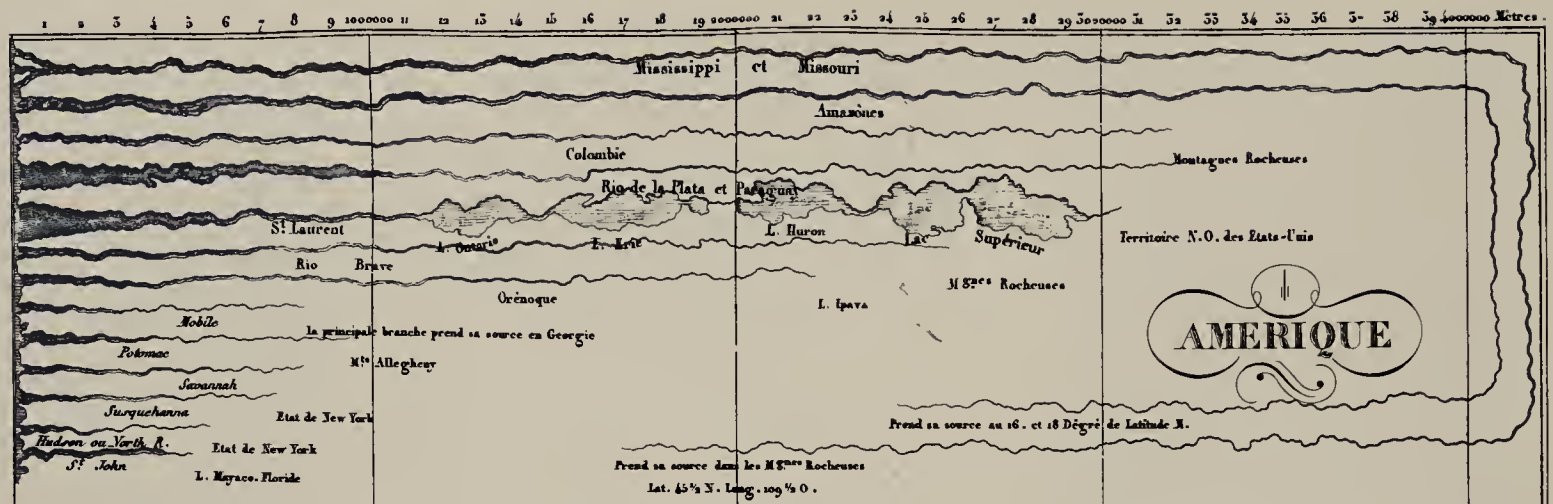 1 2 3 4 5 6 7 8 9 1000000 11 12 13 14 15 16 17 18 19 2000000 21 22 23 24 25 26 27 28 29 3000000 31 32 33 34 35 36 3- 38 39 4000000 Mètres.
Mississippi et Missouri
Amazònes
Colombie
Montagnes Rocheuses
Rio de la Plata et Paraguay
St. Laurent
L. Ontario
L. Erie
L. Huron
Lac Supérieur
Territoire N.O. des Etats-Unis
Rio Brave
Mgnes Rocheuses
Orénoque
L. Ipava
Mobile
la principale branche prend sa source en Georgie
AMERIQUE
Potomac
Mts Allegheny
Savannah
Susquehanna
Etat de New York
Prend sa source au 16. et 18 Dégré de Latitude M.
Hudson ou North R.
Etat de New York
St. John
L. Mayaco-Floride
Prend sa source dans les Mgnes Rocheuses
Lat. 45 1/2 N. Long. 109 1/2 O.